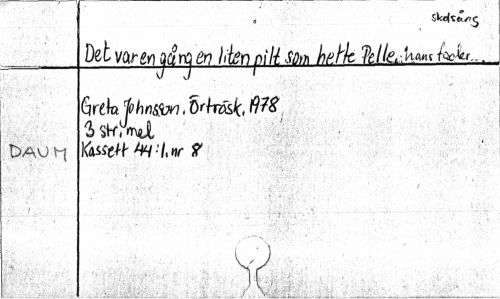 skolsång
Det var en gång en liten pilt som hette Pelle, hans fader...
Greta Johnsson, Örträsk, 1978
3 str, mel
DAUM Kassett 44:1, nr 8